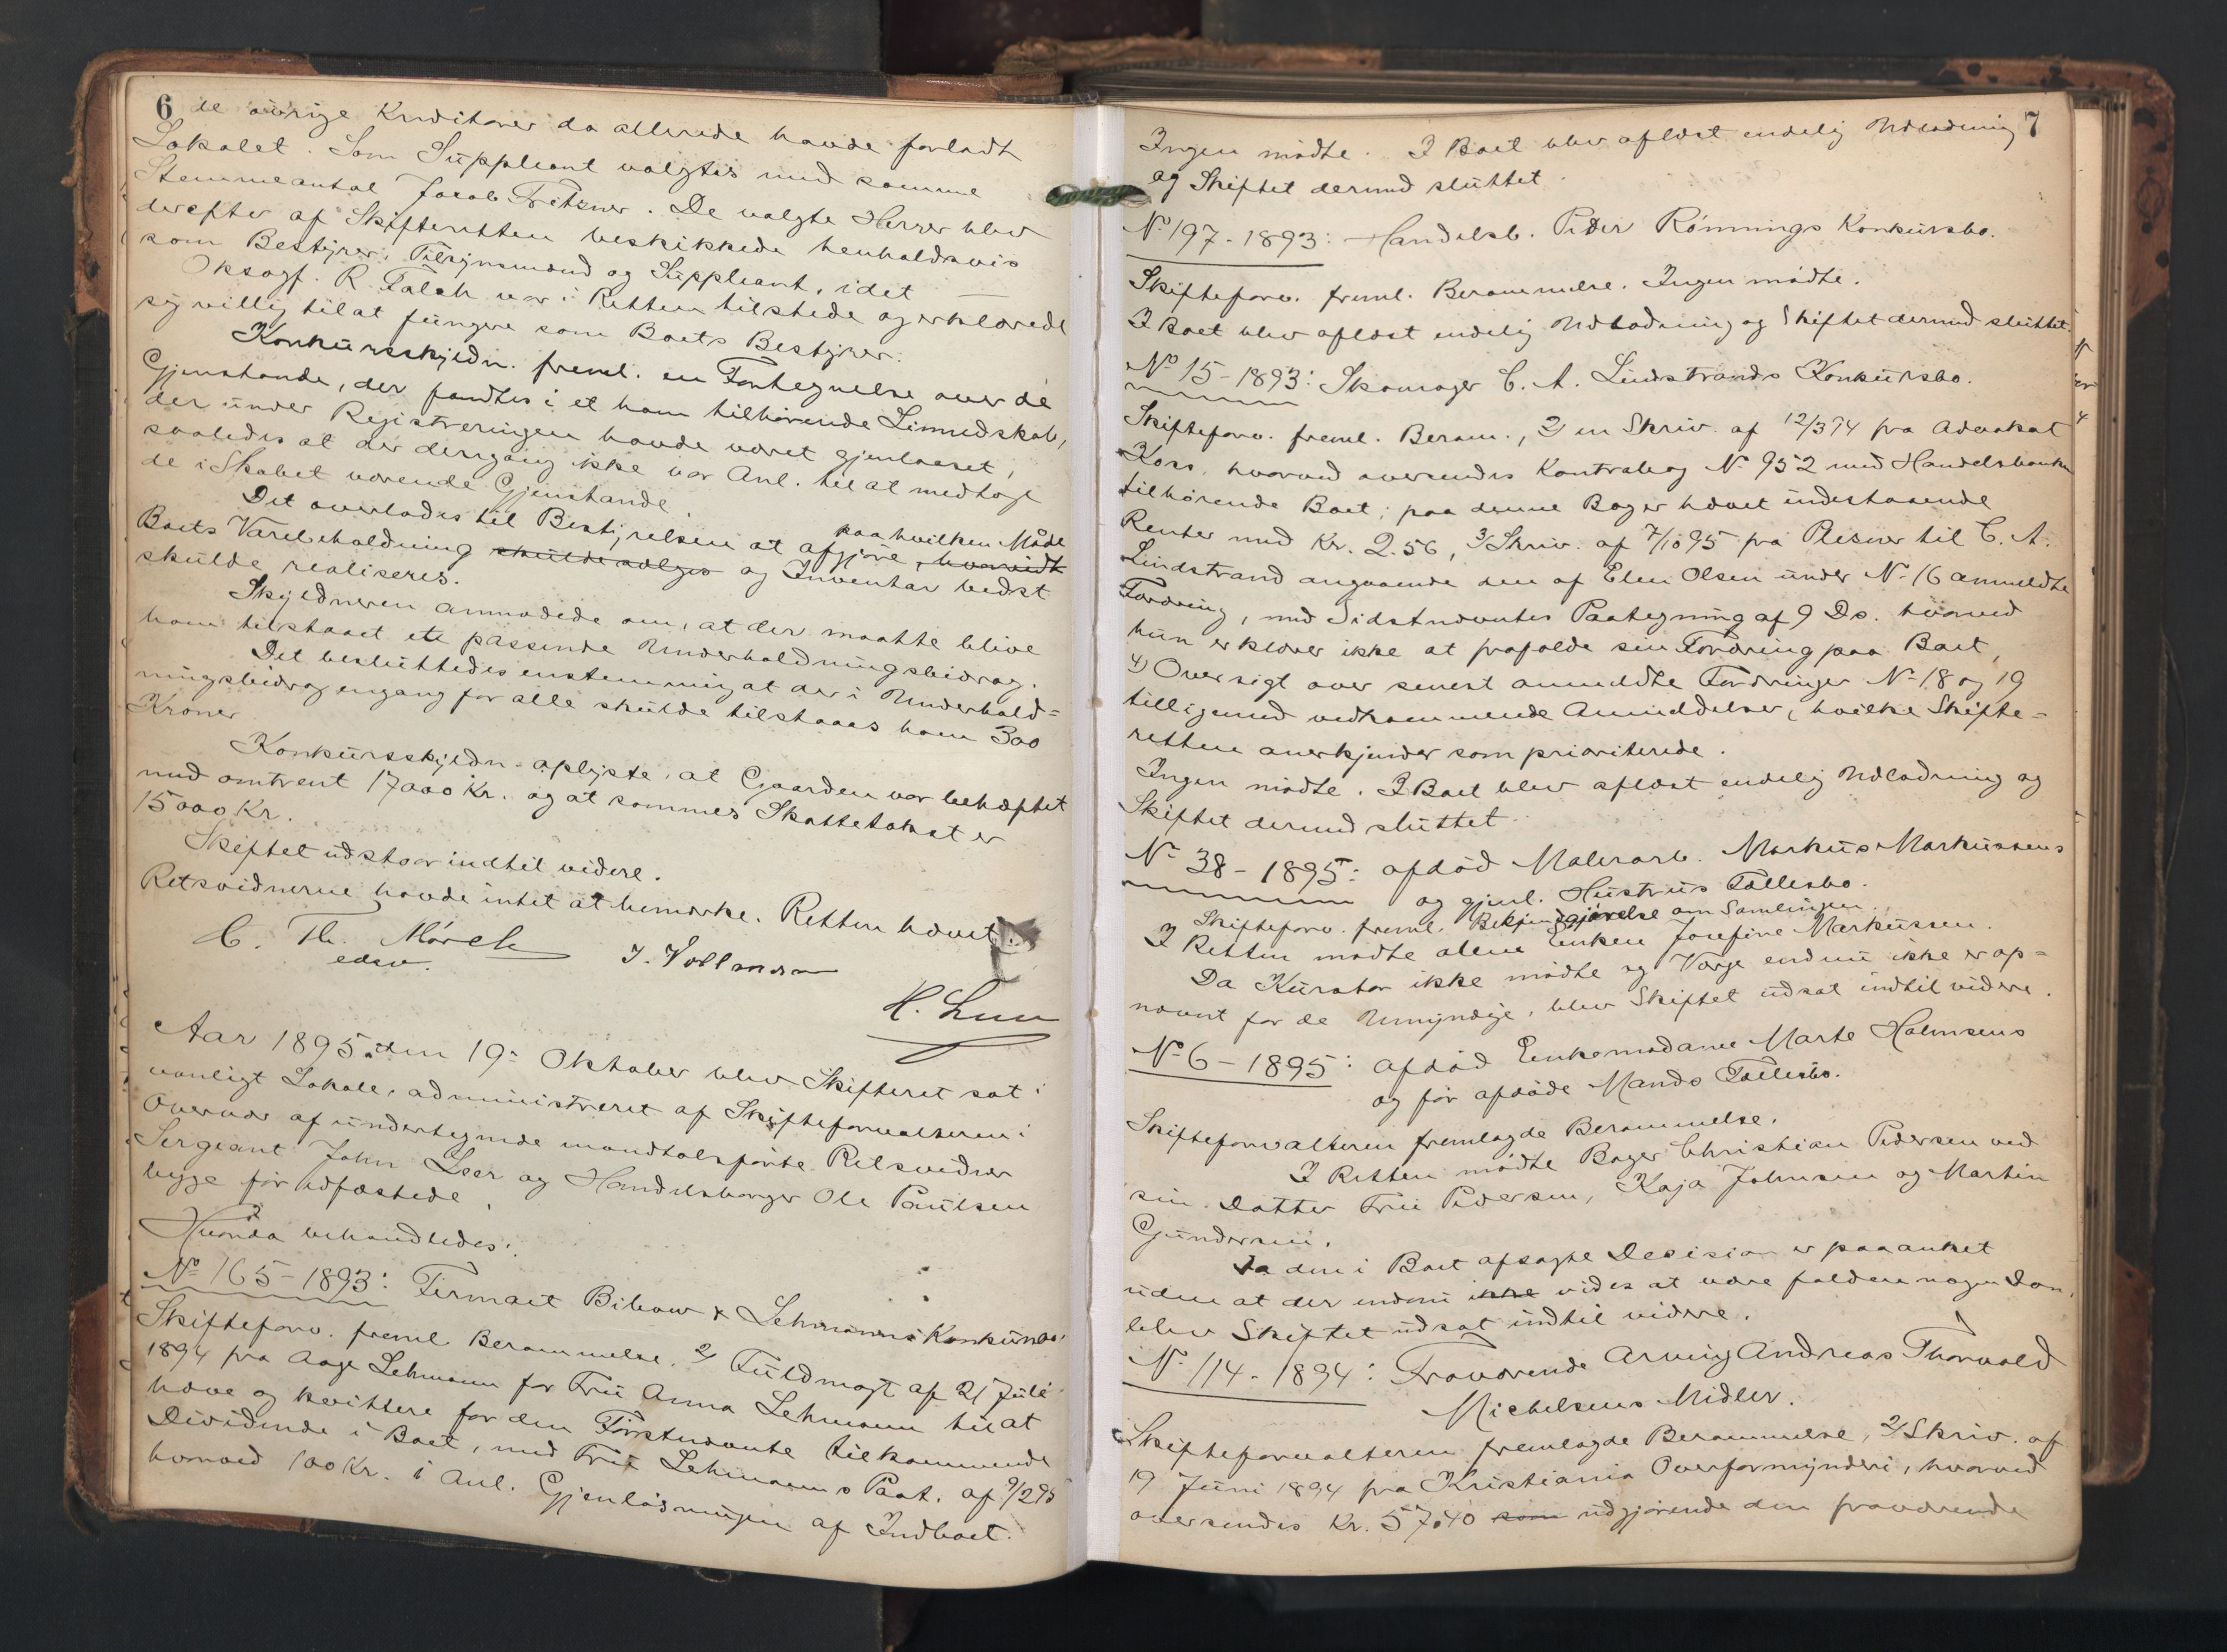 6
de øvrige Kreditorer da allerede havde forladt
Lokalet. Som Suppleant valgtes med samme
Stemmeantal Jacob Fritzner. De valgte Herrer blev
derefter af Skifteretten beskikkede henholdsvis
som Bestyrer, Tilsynsmand og Suppleant, idet
Oksagf. R. Falch var i Retten tilstede og erklærede
sig villig til at fungere som Boets Bestyrer.
Konkursskjedn. freml. en Fortegnelse over de
Gjenstande, der fandtes i et ham tilhørende Linnedskab,
der under Registreringen havde været gjenlaaset,
saaledes at der dengang ikke var Anl. til at medtage
de i Skabet værende Gjenstande.
Det overlodes til Bestyrelsen at afgjøre, hvorvidt paa hvilken Måde
Boets Varebeholdning skulde sælges og Inventar bedst
skulde realiseres.
Skyldneren anmodede om, at der maatte blive
ham tilstaaet et passende Underholdningsbidrag.
Det besluttedes enstemmig at der i Underhold=
ningsbidrag engang for alle skulde tilstaaes ham 300
Kroner
Konkursskjedn. oplyste, at Gaarden var behæftet
med omtrent 17000 Kr. og at sammes Skattetakst er
15000 Kr.
Skiftet udstaar indtil videre.
Retsvidnerne havde intet at bemærke. Retten hævet.
C. Th. Mørch
edsv.
J. Vollmann
H. Lun
Aar 1895 den 19. Oktober blev Skifteret sat i
vanligt Lokale, administreret af Skifteforvalteren i
Overvær af undertegnede mandtalsførte Retsvidner
Sergeant John Leer og Handelsborger Ole Paulsen
begge før edfæstede.
Hvorda behandledes:
No 165-1893: Firmaet Bibow & Lehmanns Konkursbo.
Skifteforv. freml. Berammelse. 2) Fuldmagt af 21 Juli
1894 fra Aage Lehmann for Fru Anna Lehmann til at
hæve og kvittere for den Førstnævnte tilkommende
Dividende i Boet, med Fru Lehmanns Paat. af 9/2 95
hvorved 100 Kr. i Anl. Gjenløsningen af Indboet.
7
Ingen mødte. I Boet blev aflæst endelig Udlodning
og Skiftet dermed sluttet.
No 197-1893: Handelsb. Peder Rønnings Konkursbo.
Skifteforv. freml. Berammelse. Ingen mødte.
I Boet blev oplæst endelig Udlodning og Skiftet dermed sluttet.
No 15-1893: Skomager C. A. Lindstrands Konkursbo.
Skifteforv. freml. Beram., 2) en Skriv. af 12/3 94 fra Advokat
Koss, hvorved oversendes Kontrabog No 952 med Handelsbanken
tilhørende Boet; paa denne Bog er hævet indestaaende
Renter med Kr. 2.56, 3) Skriv. af 7/10 95 fra Resner til C. A.
Lindstrand angaaende den af Elen Olsen under No 16 anmeldte
Fordring, med Sidstnævntes Paategning af 9 Ds. hvorved
hun erklærer ikke at frafalde sin Fordring paa Boet,
4) Oversigt over senest anmeldte Fordringer No 18 og 19
tilligemed vedkommende Anmeldelser, hvilke Skifte=
retten anerkjender som prioriterede.
Ingen mødte. I Boet blev aflæst endelig Udlodning og
Skiftet dermed sluttet.
No 38-1895: afdød Malerarb. Markus Markussens
og gjenl. Hustrus Fællesbo.
Skifteforv. freml. Bekjendtgjørelse om Samlingen.
I Retten mødte alene Enken Josefine Markussen.
Da Kurator ikke mødte og Værge endnu ikke er op=
nævnt for de Umyndige, blev Skiftet udsat indtil videre.
No 6-1895: afdød Enkemadame Marte Holmsens
og før afdøde Mands Fællesbo.
Skifteforvalteren fremlagde Berammelse.
I Retten mødte Bager Christian Pedersen ved
sin Datter Fru Pedersen, Kaja Johnsen og Martin
Gundersen.
Da den i Boet afsagte Decision er paaanket
uden at der endnu ikke vides at være falden nogen Dom,
blev Skiftet udsat indtil videre.
No 114-1894: Fraværende Arving Andreas Thorvald
Michelsens Midler.
Skifteforvalteren fremlagde Berammelse, 2) Skriv. af
19 Juni 1894 fra Kristiania Overformynderi, hvorved
oversendes Kr. 57.40 som udgjørende den fraværende